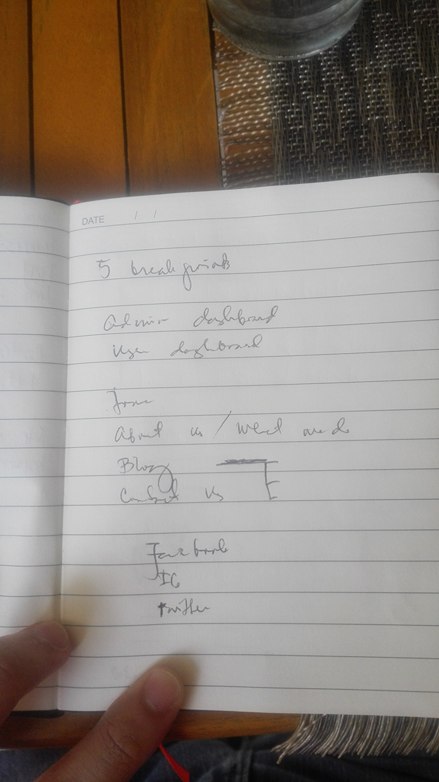 DATE / /
5 breakpoints
Admin dashboard
User dashboard
About us / What we do
Blog
Contact us
Facebook
IG
Twitter